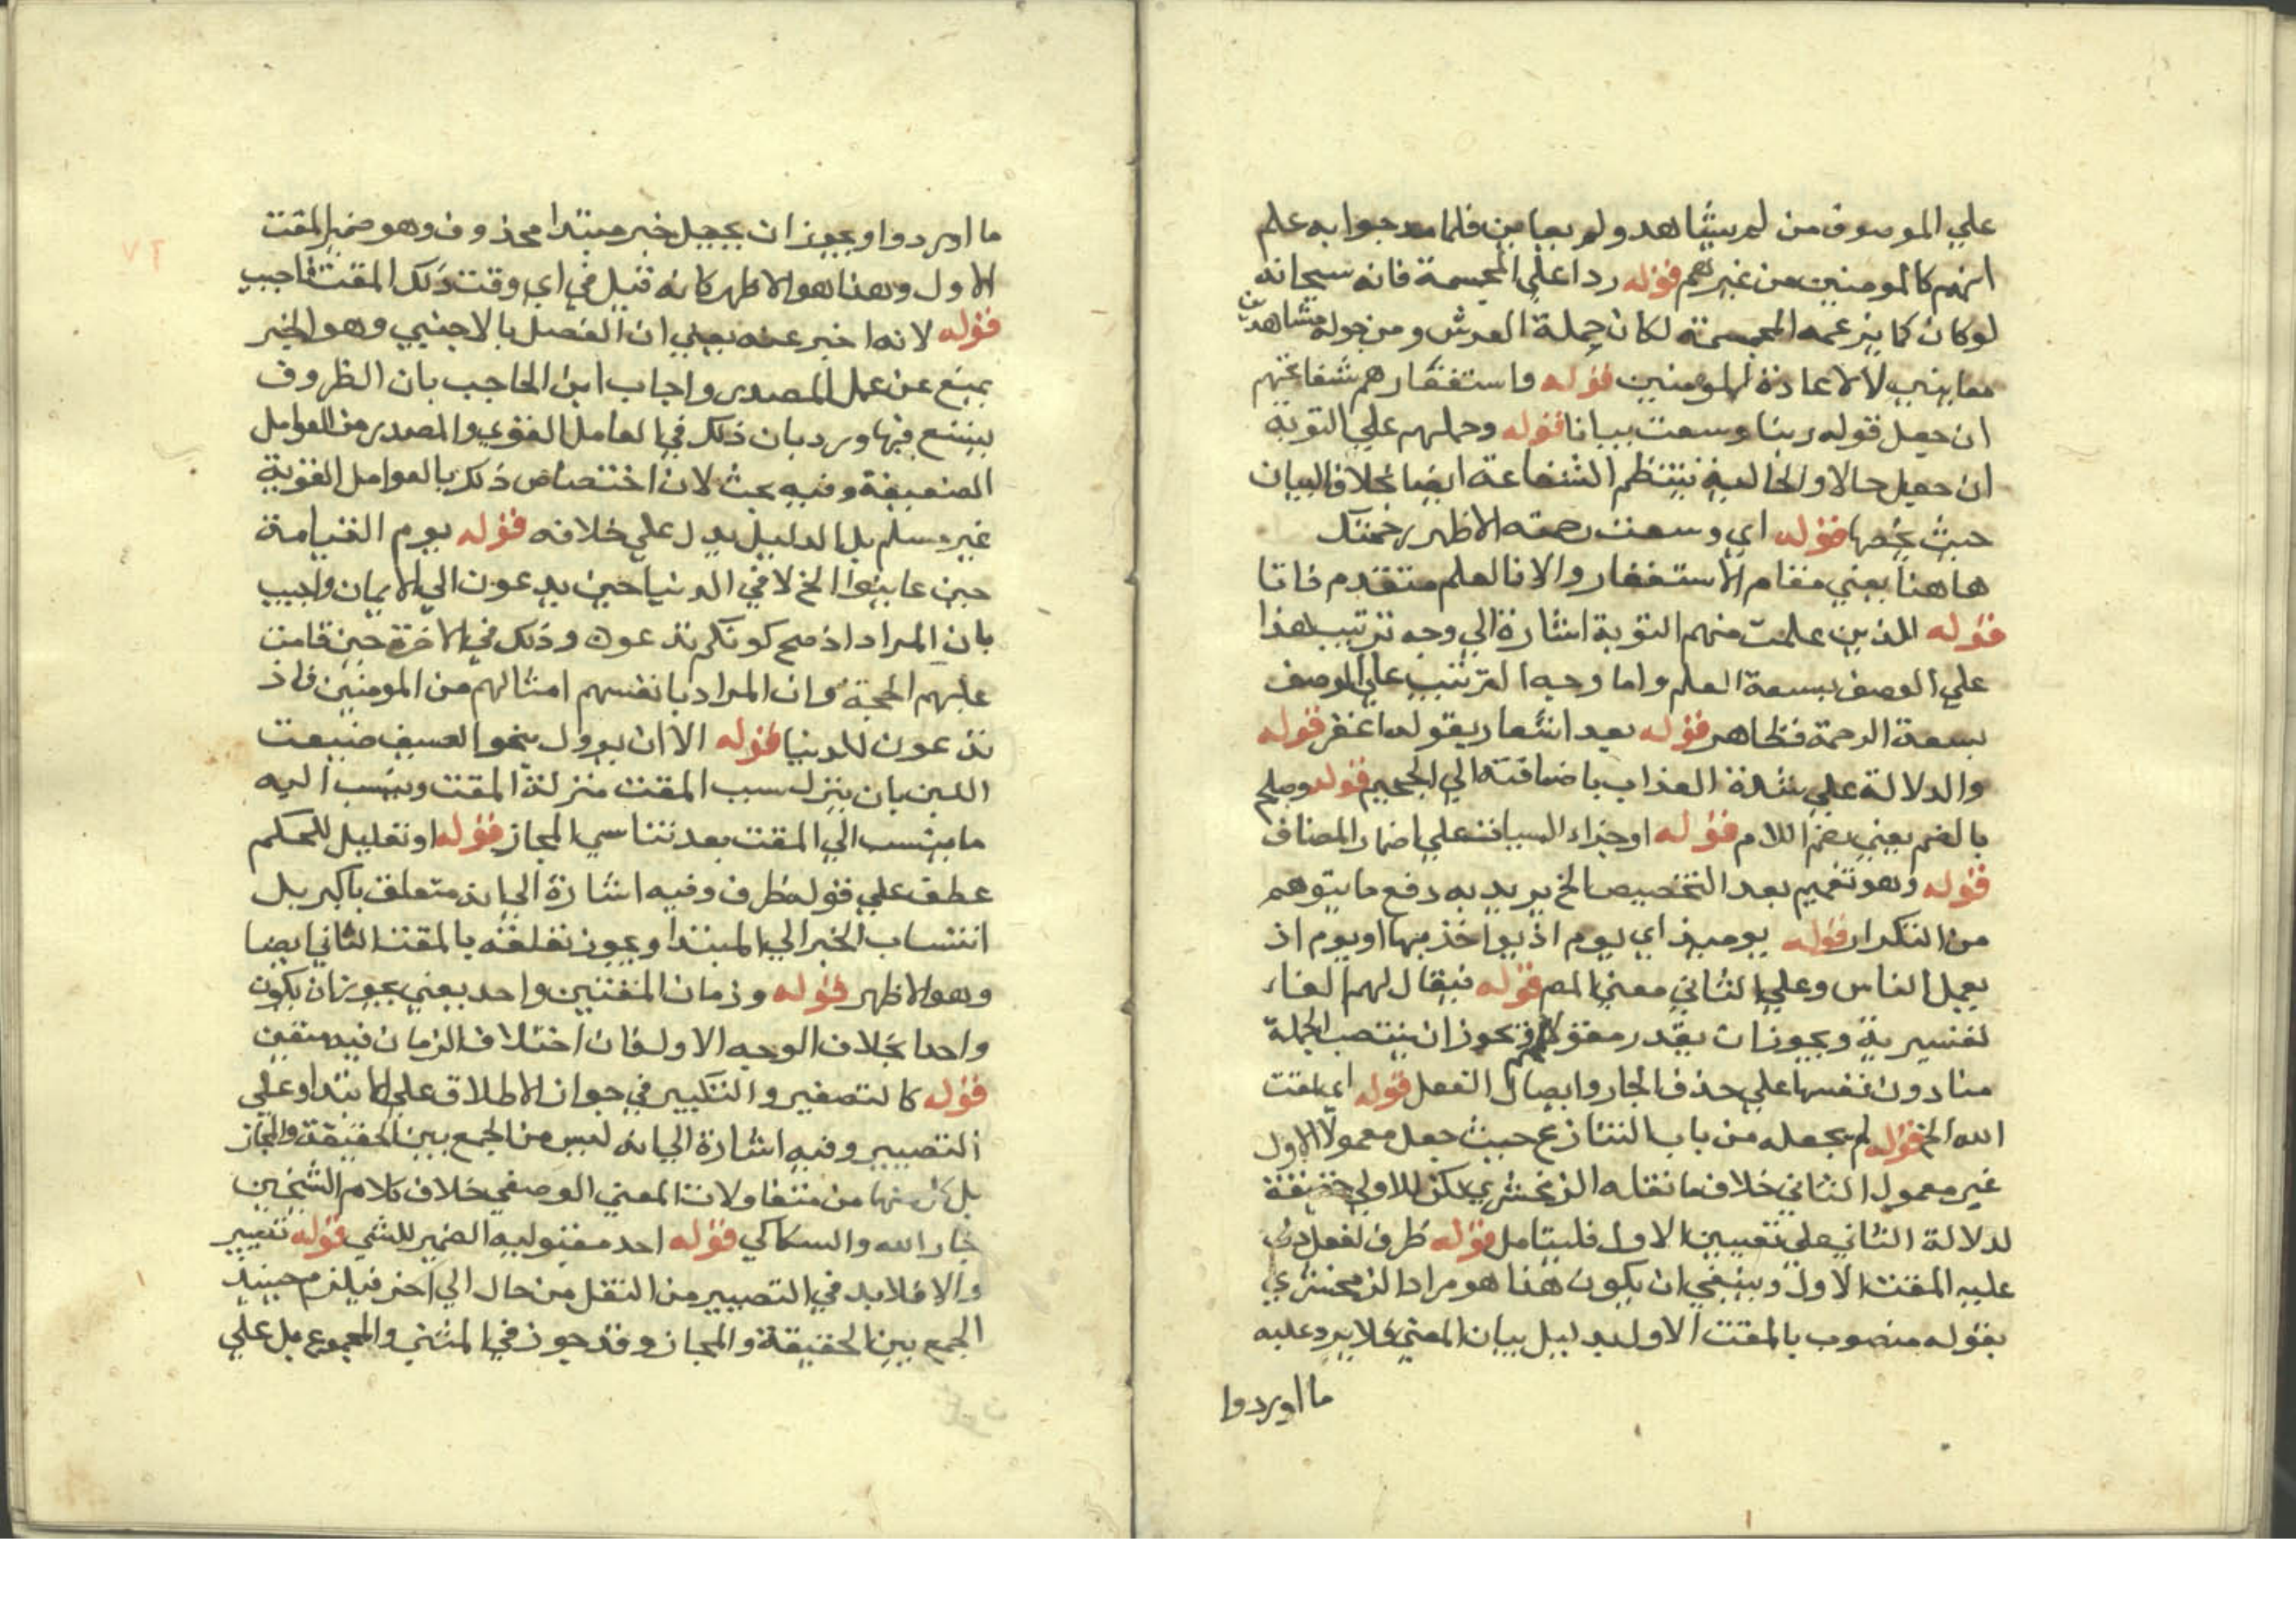 علي الموصوف من لم يشاهد ولم يعاين فلما مدحوا به علم
انهم كالمومنين من غيرهم قوله ردا علي المجسمة فانه سبحانه
لو كان كما يزعمه المجسمة لكان حملة العرش ومن حوله مشاهدين
معاينين لا لاعادة المومنين قوله واستغفارهم شفاعتهم
ان جعل قوله ربنا وسعت بيانا قوله وحملهم علي التوبة
ان جعل حالا والحالية تنتظم الشفاعة ايضا بخلاف البيان
حيث يخصها قوله اي وسعت رحمته الاظهر رحمتك
هاهنا يعني مقام الاستغفار والا فالعلم متقدم ذاتا
قوله الذين علمت منهم التوبة اشارة الي وجه ترتيب هذا
علي الوصف بسعة العلم واما وجه الترتيب علي الوصف
بسعة الرحمة فظاهر قوله بعد اشعار بقوله اغفر قوله
والدلالة علي شدة العذاب باضافته الي الجحيم قوله وصلح
بالضم يعني بضم اللام قوله او جزاء السيات علي اضمار المضاف
قوله وهو تعميم بعد التخصيص الخ يريد به دفع ما يتوهم
من التكرار قوله يوميذ اي يوم اذ يواخذ بها او يوم اذ
يعمل الناس وعلي الثاني معني المص قوله فيقال لهم الفاء
تفسيرية ويجوز ان يقدر مقولا لهم ويجوز ان ينتصب الجملة
منادون نفسها علي حذف الجار وايصال الفعل قوله اي لمقت
الله الخ قوله لم يجعله من باب التنازع حيث جعل معمولا الاول
غير معمول الثاني خلاف ما نقله الزمخشري لكن للاولي حقيقة
لدلالة الثاني علي تعيين الاول فليتامل قوله ظرف لفعل دل
عليه المقت الاول وينبغي ان يكون هذا هو مراد الزمخشري
بقوله منصوب بالمقت الاول بدليل بيان المعني فلا يرد عليه
ما اوردوا
ما اوردوا ويجوز ان يجعل خبر مبتدا محذوف وهو ضمير المقت
الاول وهذا هو الاظهر كانه قيل في اي وقت ذلك المقت فاجيب
قوله لانه اخبر عنه يعني ان الفصل بالاجنبي وهو الخبر
يمنع عن عمل المصدر واجاب ابن الحاجب بان الظروف
يتسع فيها ورد بان ذلك في العامل القوي والمصدر من العوامل
الضعيفة وفيه بحث لان اختصاص ذلك بالعوامل القوية
غير مسلم بل الدليل يدل علي خلافه قوله يوم القيامة
حين عاينوا الخ لا في الدنيا حين يدعون الي الايمان واجيب
بان المراد اذ صح كونكم تدعون وذلك في الاخرة حين قامت
عليهم الحجة وان المراد بانفسهم امثالهم من المومنين فاذ
تدعون للدنيا قوله الا ان يوول بنحو الصيف ضيعت
اللبن بان ينزل سبب المقت منزلة المقت وينسب اليه
ما ينسب الي المقت بعد تناسي المجاز قوله او تعليل للحكم
عطف علي قوله ظرف وفيه اشارة الي انه متعلق باكبر بل
انتساب الخبر الي المبتدا ويجوز تعلقه بالمقت الثاني ايضا
وهو الاظهر قوله وزمان المقتين واحد يعني يجوز ان يكون
واحدا بخلاف الوجه الاول فان اختلاف الزمان فيه متعين
قوله كالتصغير والتكبير في جواز الاطلاق علي الابتداء وعلي
التصيير وفيه اشارة الي انه ليس من الجمع بين الحقيقة والمجاز
بل كل منهما من متناولات المعني الوصفي خلاف كلام الشيخين
جار الله والسكاكي قوله احد مفعوليه الضمير للشي قوله تغيير
والا فلا بد في التصيير من النقل من حال الي اخر فيلزم حينيذ
الجمع بين الحقيقة والمجاز وقد جوز في المثني والمجموع بل علي